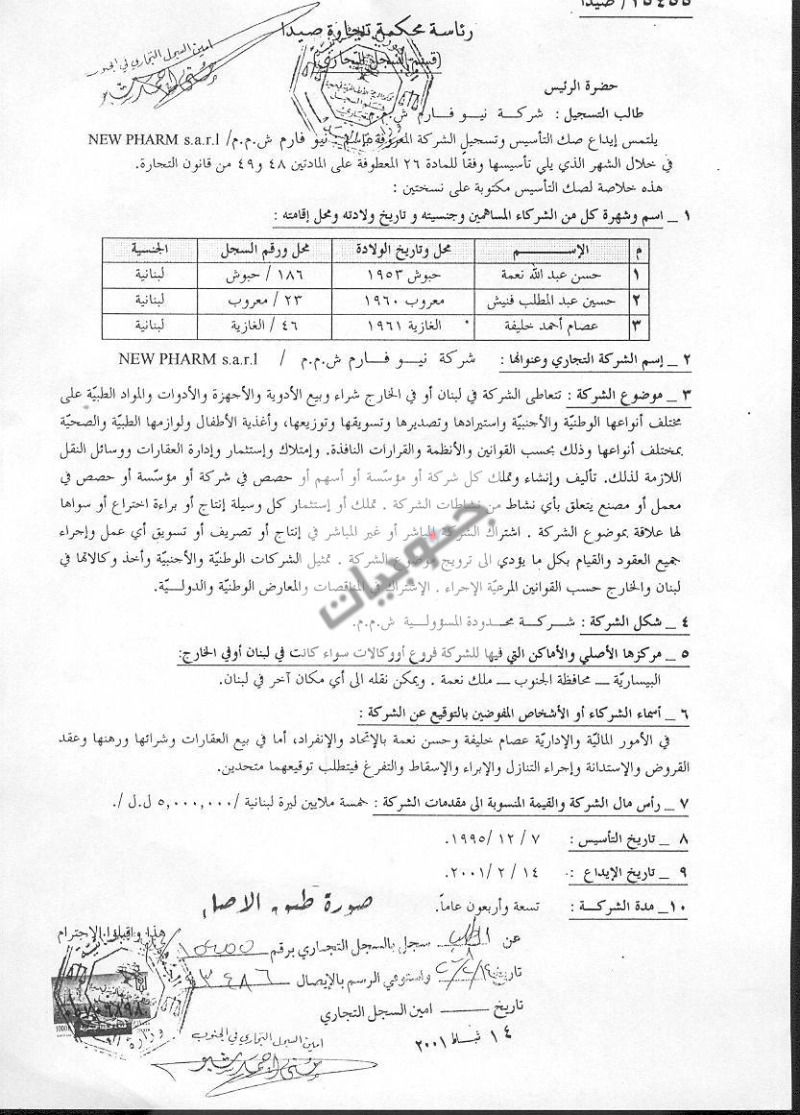 ١٥٤٥٥/ صيدا
رئاسة محكمة تجارة صيدا
(قسم السجل التجاري)
امين السجل التجاري في الجنوب
حضرة الرئيس
طالب التسجيل : شركة نيو فارم ش.م.م
يلتمس إيداع صك التأسيس وتسجيل الشركة المعروفة بإسم : نيو فارم ش.م.م/ NEW PHARM s.a.r.l
في خلال الشهر الذي يلي تأسيسها وفقاً للمادة ٢٦ المعطوفة على المادتين ٤٨ و٤٩ من قانون التجارة.
هذه خلاصة لصك التأسيس مكتوبة على نسختين :
١ _ اسم وشهرة كل من الشركاء المساهمين وجنسيته و تاريخ ولادته ومحل إقامته :
م الإســـم محل وتاريخ الولادة محل ورقم السجل الجنسية
١ حسن عبد الله نعمة حبوش ١٩٥٣ ١٨٦ / حبوش لبنانية
٢ حسين عبد المطلب فنيش معروب ١٩٦٠ ٢٣ / معروب لبنانية
٣ عصام أحمد خليفة الغازية ١٩٦١ ٤٦ / الغازية لبنانية
٢ _ إسم الشركة التجاري وعنوانها : شركة نيـو فـارم ش.م.م / NEW PHARM s.a.r.l
٣ _ موضوع الشركة : تتعاطى الشركة في لبنان أو في الخارج شراء وبيع الأدوية والأجهزة والأدوات والمواد الطبيّة على
مختلف أنواعها الوطنيّة والأجنبيّة واستيرادها وتصديرها وتسويقها وتوزيعها، وأغذية الأطفال ولوازمها الطبيّة والصحيّة
بمختلف أنواعها وذلك بحسب القوانين والأنظمة والقرارات النافذة. وإمتلاك وإستثمار وإدارة العقارات ووسائل النقل
اللازمة لذلك. تأليف وإنشاء وتملك كل شركة أو مؤسّسة أو أسهم أو حصص في شركة أو مؤسّسة أو حصص في
معمل أو مصنع يتعلق بأي نشاط من نشاطات الشركة . تملك أو إستثمار كل وسيلة إنتاج أو براءة اختراع أو سواها
لها علاقة بموضوع الشركة . اشتراك الشركة المباشر أو غير المباشر في إنتاج أو تصريف أو تسويق أي عمل وإجراء
جميع العقود والقيام بكل ما يؤدي الى ترويج موضوع الشركة . تمثيل الشركات الوطنيّة والأجنبيّة وأخذ وكالاتها في
لبنان والخارج حسب القوانين المرعيّة الإجراء . الإشتراك في المناقصات والمعارض الوطنيّة والدوليـّة.
جنوبيات
٤ _ شكل الشركة : شـركـة محـدودة المسؤوليـة ش.م.م.
٥ _ مركزها الأصلي والأماكن التي فيها للشركة فروع أووكالات سواء كانت في لبنان أوفي الخارج:
البيساريّة _ محافظة الجنوب _ ملك نعمة . ويمكن نقله الى أي مكان آخر في لبنان.
٦ _ أسماء الشركاء أو الأشخاص المفوضين بالتوقيع عن الشركة :
في الأمور الماليّة والإداريّة عصام خليفة وحسن نعمة بالإتحاد والإنفراد، أما في بيع العقارات وشرائها ورهنها وعقد
القروض والإستدانة وإجراء التنازل والإبراء والإسقاط والتفرغ فيتطلب توقيعهما متحدين.
٧ _ رأس مال الشركة والقيمة المنسوبة الى مقدمات الشركة : خمسة ملايين ليرة لبنانية /٥,٠٠٠,٠٠٠ ل.ل /.
٨ _ تاريخ التأسيس : ٧ / ١٢ /١٩٩٥.
٩ _ تاريخ الإيداع : ١٤ / ٢ /٢٠٠١.
١٠_ مدة الشركة : تسعة وأربعون عاماً.
صورة طبق الاصل
هذا واقبلوا الإحترام
عن الطلب سجل بالسجل التجاري برقم ١٥٤٥٥
تاريخ واستوفي الرسم بالإيصال ٣٤٨٦
تاريخ _ امين السجل التجاري
١٤ شباط ٢٠٠١
امين السجل التجاري في الجنوب